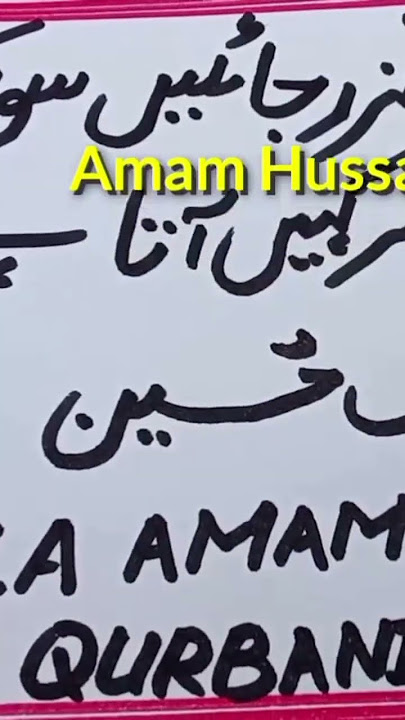 جائیں
Amam Hussa
نہیں آتا
حُسین
A AMAM
QURBAN